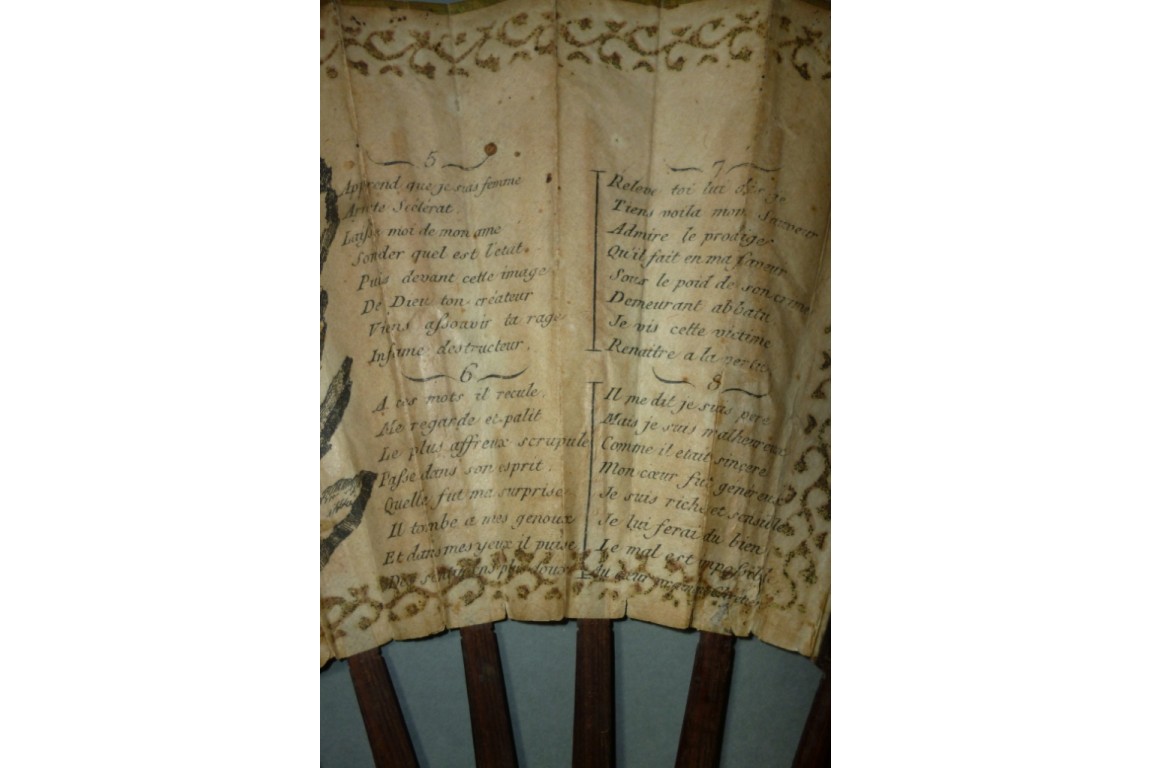 5
Apprend que je suis femme
Arrete Scélérat.
Laisse moi de mon ame
Sonder quel est l'etat.
Puis devant cette image
De Dieu ton créateur
Viens assouvir ta rage
Infame destructeur.
6
A ces mots il recule.
Me regarde et palit
Le plus affreux scrupule
Passe dans son esprit.
Quelle fut ma surprise
Il tombe a mes genoux
Et dans mes yeux il puise
Des sentimens plus doux
7
Releve toi lui dis je
Tiens voila mon Sauveur
Admire le prodige
Qu'il fait en ma faveur
Sous le poid de son crime
Demeurant abbatu.
Je vis cette victime
Renaitre a la vertu
8
Il me dit je suis pere
Mais je suis malheureux
Comme il etait sincere
Mon cœur fut genereux
Je suis riche et sensible
Je lui ferai du bien
Le mal est impossible
Au cœur vraiment Chretien